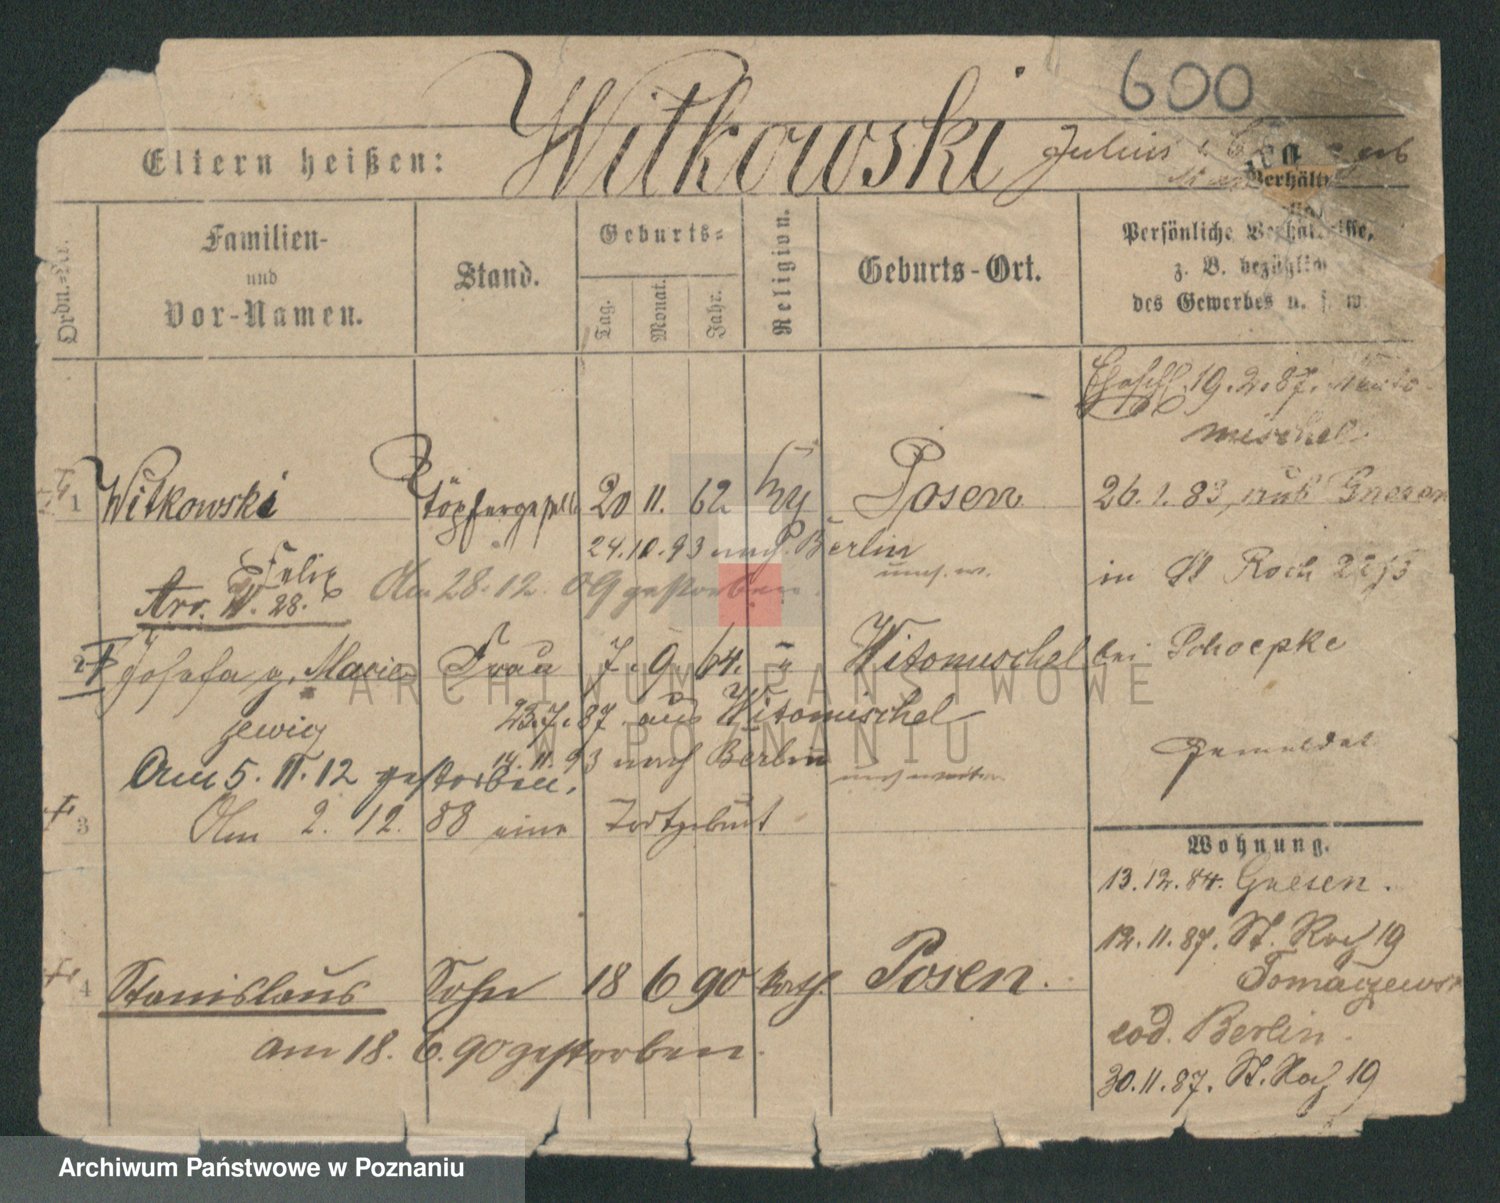 600
Witkowski Julius
Eltern heißen:
Verhält
Ordn.-Nr.
Familien-
und
Vor-Namen.
Stand.
Geburts-
Tag.
Monat.
Jahr.
Religion.
Geburts-Ort.
Persönliche
z. B. bezüglich
des Gewerbes u. s. w.
19.2.87.
mischel
1 Witkowski Töpfergeselle 20 11. 62 Posen 26.1.83 aus Gnesen
Felix
24.10.93 nach Berlin
Arr. II. 28.
Am 28.12.09 gestorben.
in St Roch
2 Josefa g. Marie- Frau 7. 9 64. " Witomischel bei Schoepke
jewig
23.7.87 aus Witomischel
14.11.93 nach Berlin
Am 5. II. 12 gestorben.
gemeldet
3 Am 2. 12. 88 eine Todtgeburt
Wohnung.
13.12.84. Gnesen.
12.11.87. St. Roch 19
Tomaczewsk
4 Stanislaus Sohn 18 6 90 kath. Posen.
am 18. 6. 90 gestorben.
Berlin.
30.11.87. St. Roch 19
ARCHIWUM PAŃSTWOWE
W POZNANIU
Archiwum Państwowe w Poznaniu